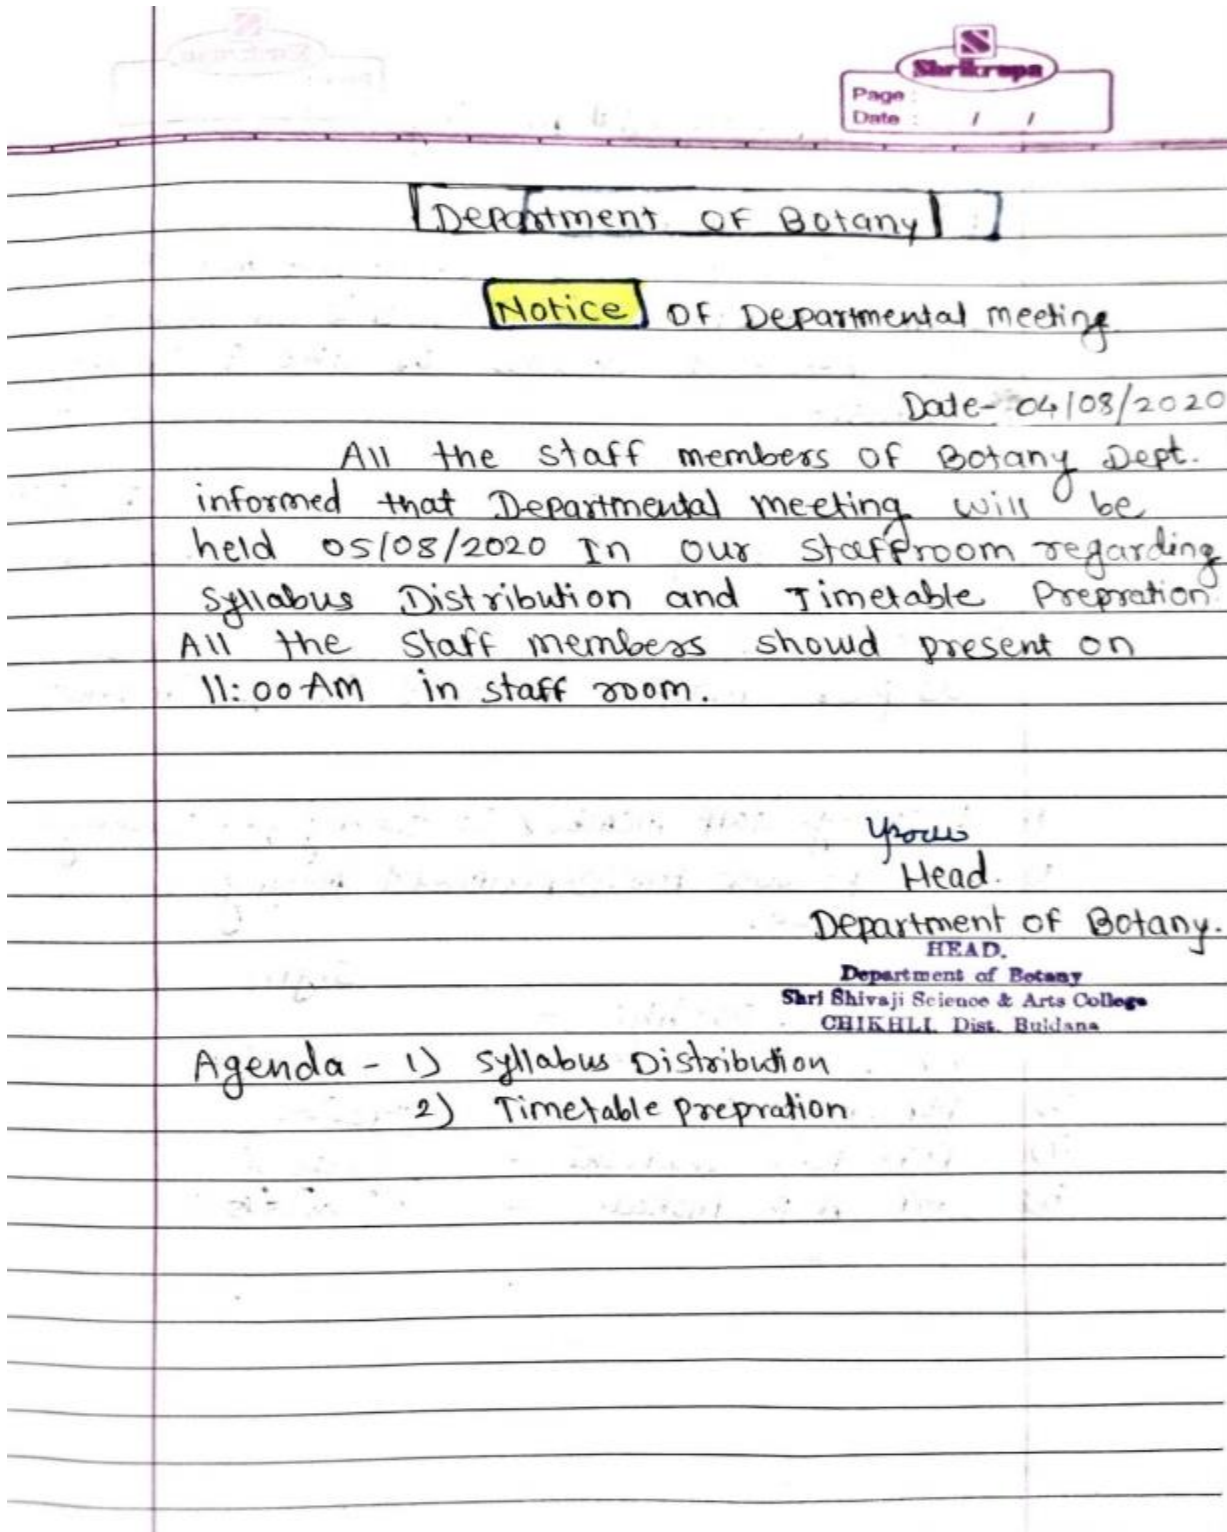 Shrikrupa
Page :
Date : / /
Department OF Botany
Notice OF Departmental meeting
Date- 04/08/2020
All the staff members of Botany Dept.
informed that Departmental meeting will be
held 05/08/2020 In our staffroom regarding
Syllabus Distribution and Timetable Prepration.
All the staff members should present on
11:00 AM in staff room.
Head.
Department of Botany.
HEAD.
Department of Botany
Shri Shivaji Science & Arts College
CHIKHLI, Dist. Buldana
Agenda - 1) Syllabus Distribution
2) Timetable prepration